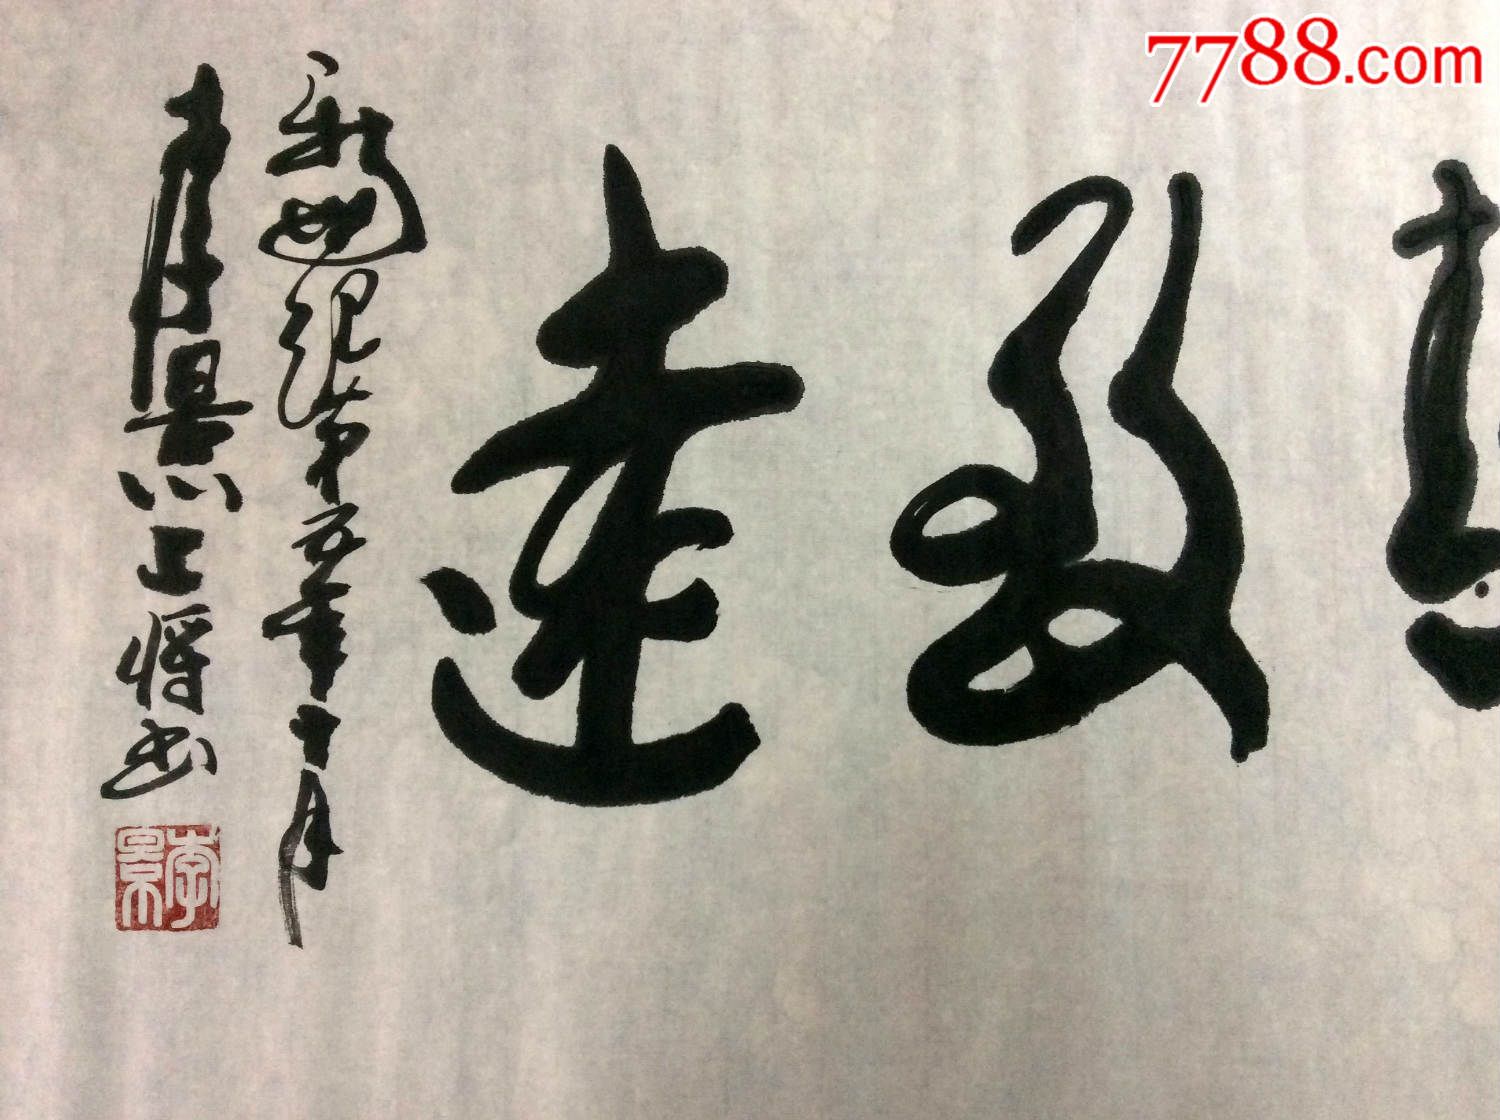 致遠
新世纪第五年十月
李景上将书
李景
7788.com